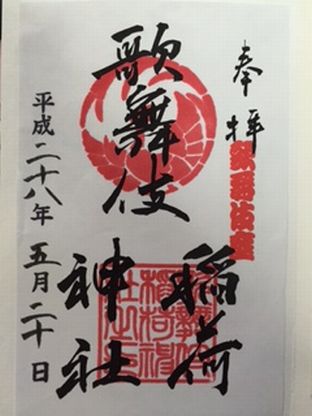 奉拝
歌舞伎座
歌舞伎
稲荷
神社
平成二十八年 五月二十日